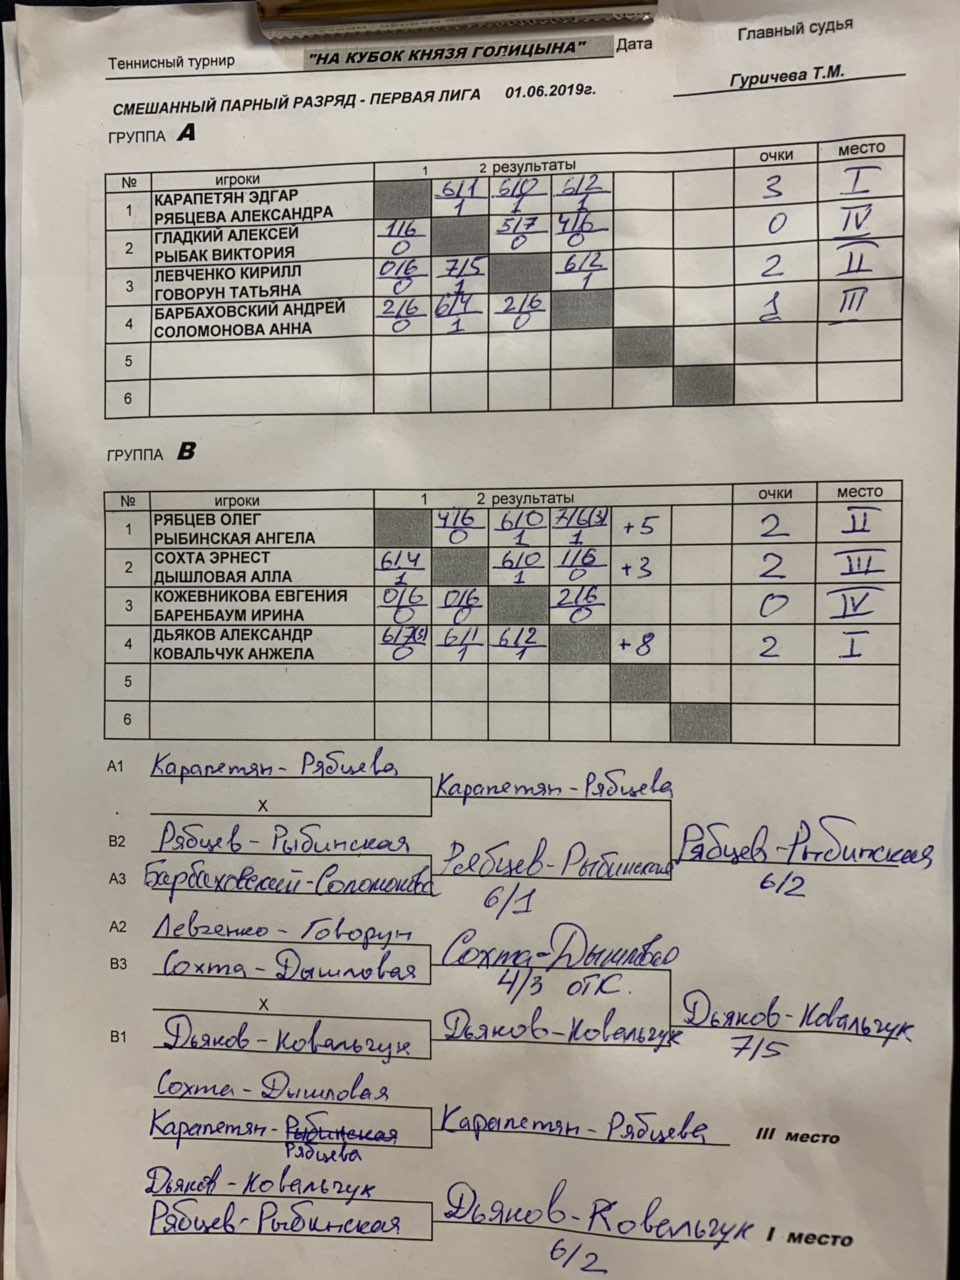 Теннисный турнир "НА КУБОК КНЯЗЯ ГОЛИЦЫНА" Дата Главный судья
СМЕШАННЫЙ ПАРНЫЙ РАЗРЯД - ПЕРВАЯ ЛИГА 01.06.2019г. Гуричева Т.М.
ГРУППА A
№ игроки 1 2 результаты очки место
1 КАРАПЕТЯН ЭДГАР 6/1 6/0 6/2 3 I
РЯБЦЕВА АЛЕКСАНДРА 1 1 1
2 ГЛАДКИЙ АЛЕКСЕЙ 1/6 5/7 4/6 0 IV
РЫБАК ВИКТОРИЯ 0 0 0
3 ЛЕВЧЕНКО КИРИЛЛ 0/6 7/5 6/2 2 II
ГОВОРУН ТАТЬЯНА 0 1 1
4 БАРБАХОВСКИЙ АНДРЕЙ 2/6 6/4 2/6 1 III
СОЛОМОНОВА АННА 0 1 0
5
6
ГРУППА B
№ игроки 1 2 результаты очки место
1 РЯБЦЕВ ОЛЕГ 4/6 6/0 7/6(3) +5 2 II
РЫБИНСКАЯ АНГЕЛА 0 1 1
2 СОХТА ЭРНЕСТ 6/4 6/0 1/6 +3 2 III
ДЫШЛОВАЯ АЛЛА 1 1 0
3 КОЖЕВНИКОВА ЕВГЕНИЯ 0/6 0/6 2/6 0 IV
БАРЕНБАУМ ИРИНА 0 0 0
4 ДЬЯКОВ АЛЕКСАНДР 6/7(3) 6/1 6/2 +8 2 I
КОВАЛЬЧУК АНЖЕЛА 0 1 1
5
6
A1 Карапетян - Рябцева
Карапетян - Рябцева
X
B2 Рябцев - Рыбинская
Рябцев - Рыбинская
6/2
A3 Барбаховский - Соломонова
Рябцев - Рыбинская
6/1
A2 Левченко - Говорун
B3 Сохта - Дышловая
Сохта - Дышлово
4/3 отк.
X
B1 Дьяков - Ковальчук
Дьяков - Ковальчук
Дьяков - Ковальчук
7/5
Сохта - Дышловая
Карапетян - Рыбинская
Рябцева
Карапетян - Рябцева III место
Дьяков - Ковальчук
Рябцев - Рыбинская
Дьяков - Ковальчук I место
6/2